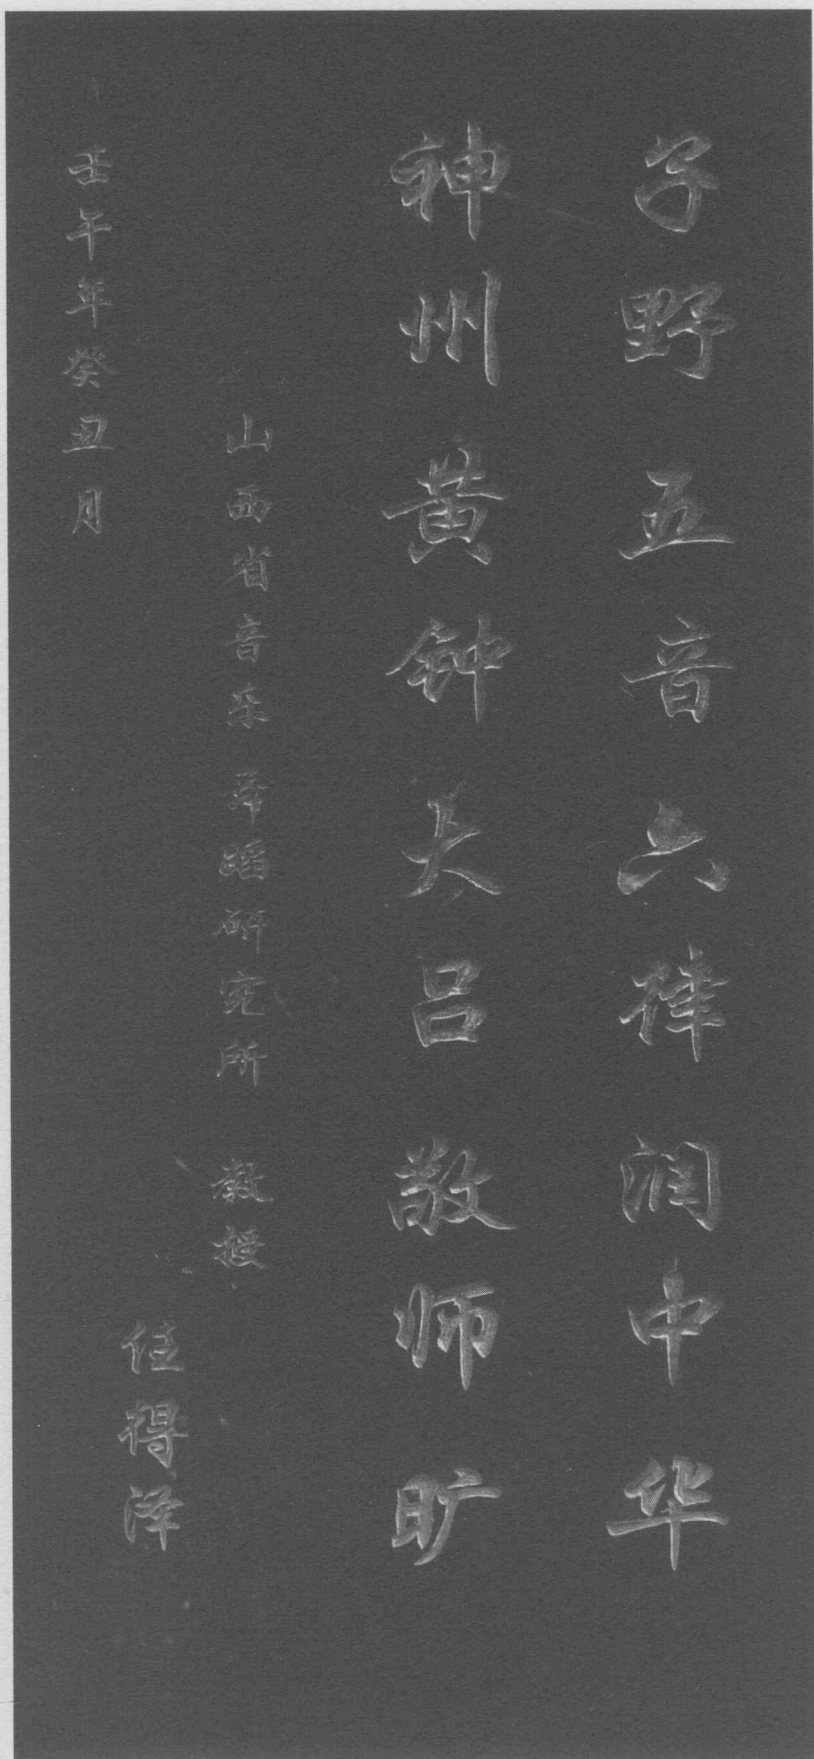 子野五音六律润中华
神州黄钟大吕敬师旷
山西省音乐舞蹈研究所 教授
任得泽
壬午年癸丑月